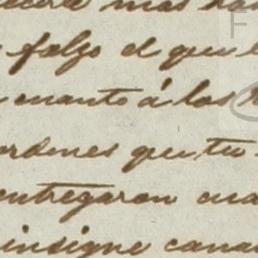 mas
falso el que
cuanto á las
ordenes que tu
entregaron cua
insigne cana